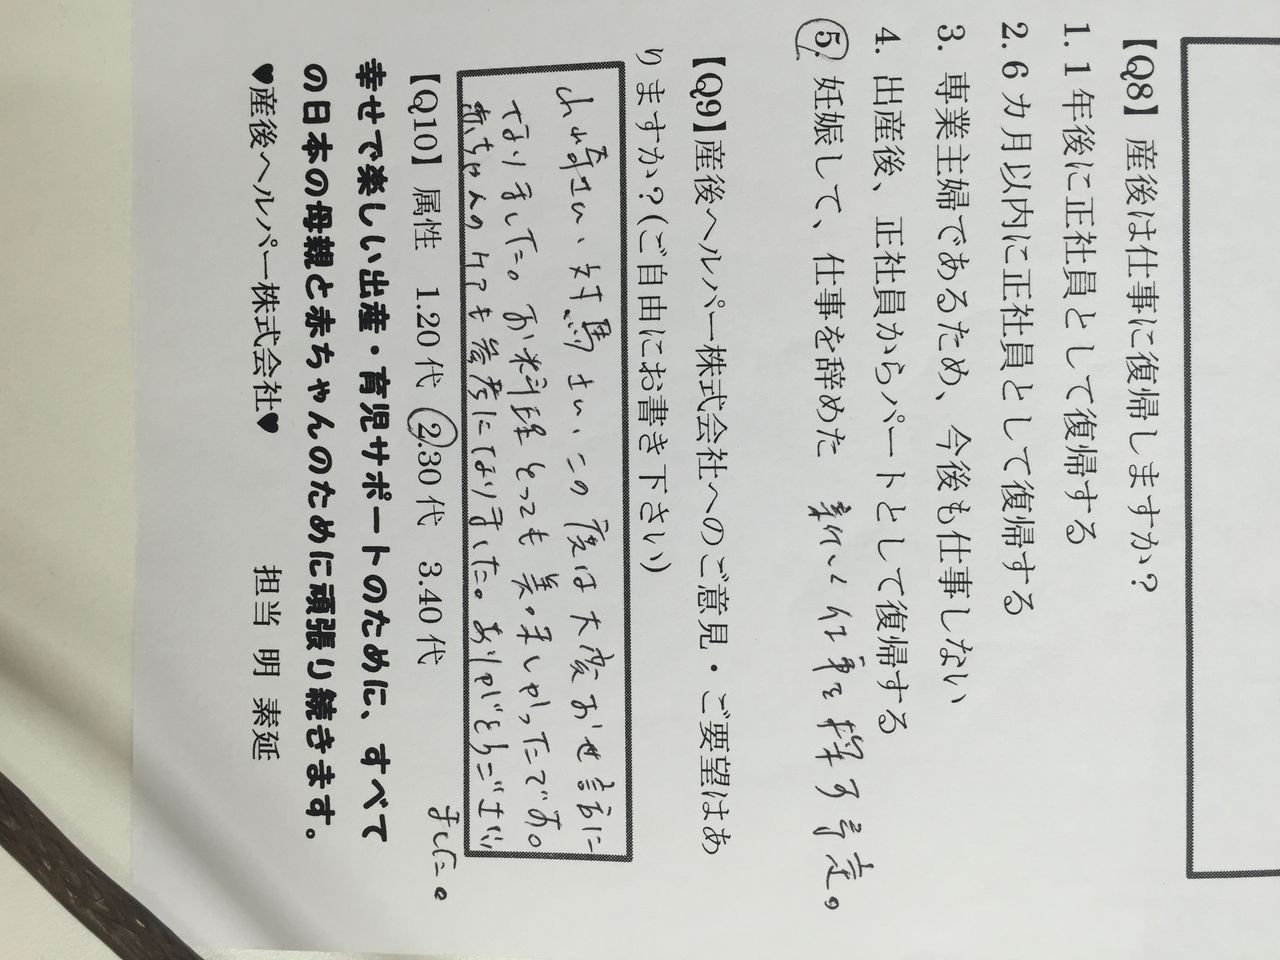 【Q8】産後は仕事に復帰しますか?
1. 1年後に正社員として復帰する
2. 6カ月以内に正社員として復帰する
3. 専業主婦であるため、今後も仕事しない
4. 出産後、正社員からパートとして復帰する
5. 妊娠して、仕事を辞めた 新しく仕事を探す予定。
【Q9】産後ヘルパー株式会社へのご意見・ご要望はあ
りますか?(ご自由にお書き下さい)
山崎さん、対馬さん、この度は大変お世話に
なりました。お料理とっても美味しかったです。
赤ちゃんのケアも参考になりました。ありがとうございい
ました。
【Q10】属性 1.20代 2.30代 3.40代
幸せで楽しい出産・育児サポートのために、すべて
の日本の母親と赤ちゃんのために頑張り続きます。
♥産後ヘルパー株式会社♥ 担当 明 素延